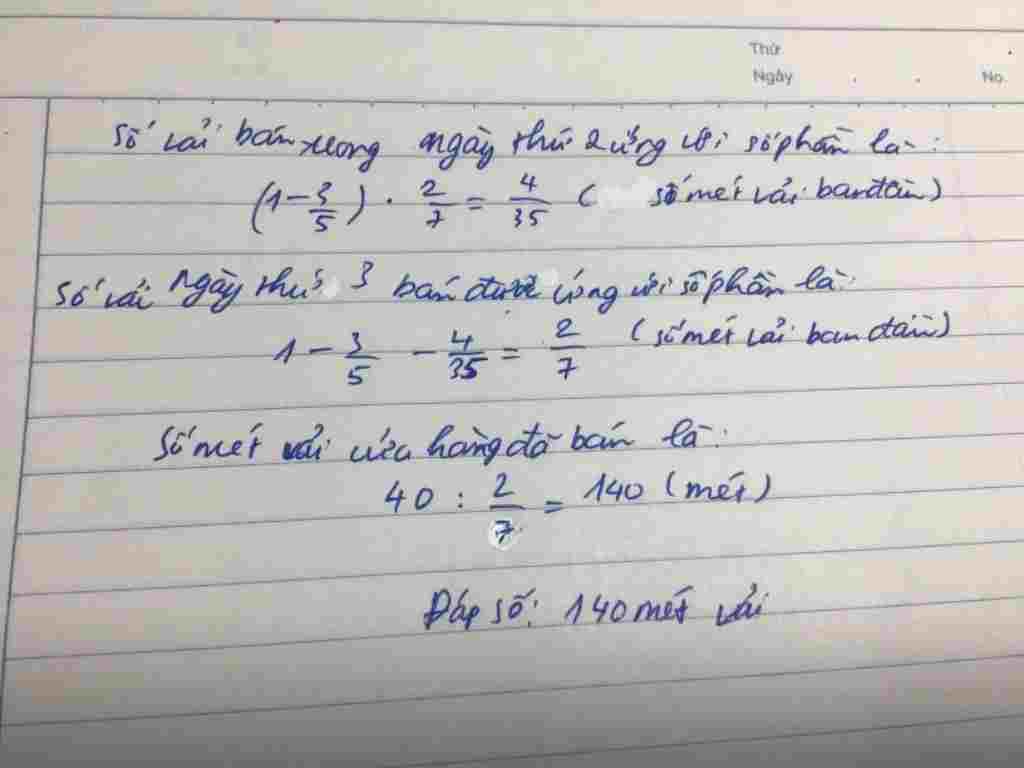 Thứ
Ngày . . No.
Số vải bán xong ngày thứ 2 ứng với số phần là:
(1 - 3/5) . 2/7 = 4/35 ( số mét vải ban đầu)
Số vải ngày thứ 3 bán được ứng với số phần là:
1 - 3/5 - 4/35 = 2/7 (số mét vải ban đầu)
Số mét vải cửa hàng đã bán là:
40 : 2/7 = 140 (mét)
Đáp số: 140 mét vải